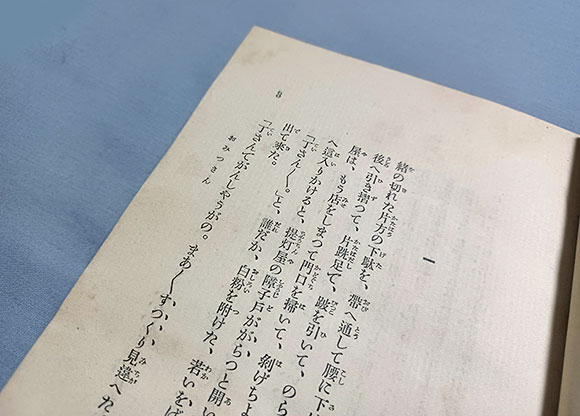 一
緒の切れた片方の下駄を、帶へ通して腰に下
後へ引き摺つて、片跣足で、跛を引いて、のら
屋は、もう店をしまつて門口を掃いて、剝げちよ
へ這入りかけると、提灯屋の障子戸ががらつと開い
「丁さん〳〵。」と、誰だか、白粉を附けた、若い
出て來た。
「丁さんてがんしやうがの。まあ〳〵すつくり見違へた
おみつさん